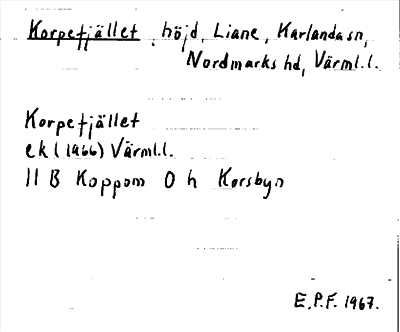 Korpefjället, höjd, Liane, Karlanda sn,
Nordmarks hd, Värml. l.
Korpefjället
ek (1966) Värml.l.
11 B Koppom 0 h Korsbyn
E.P.F. 1967.